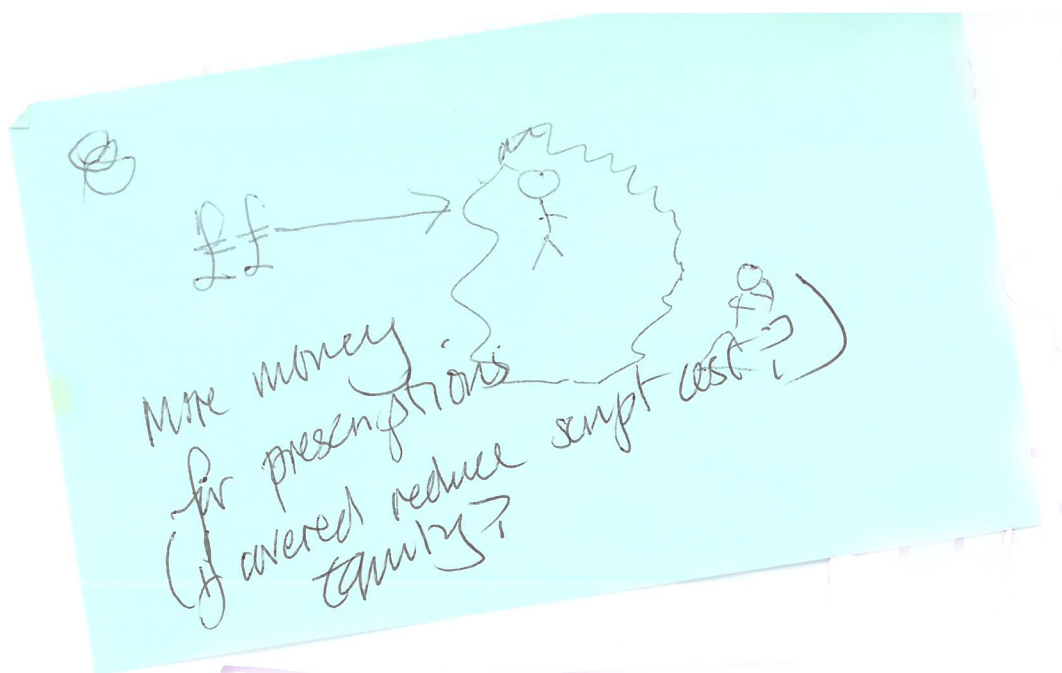 ££
More money
for prescriptions
(If covered reduce script cost?)
family?